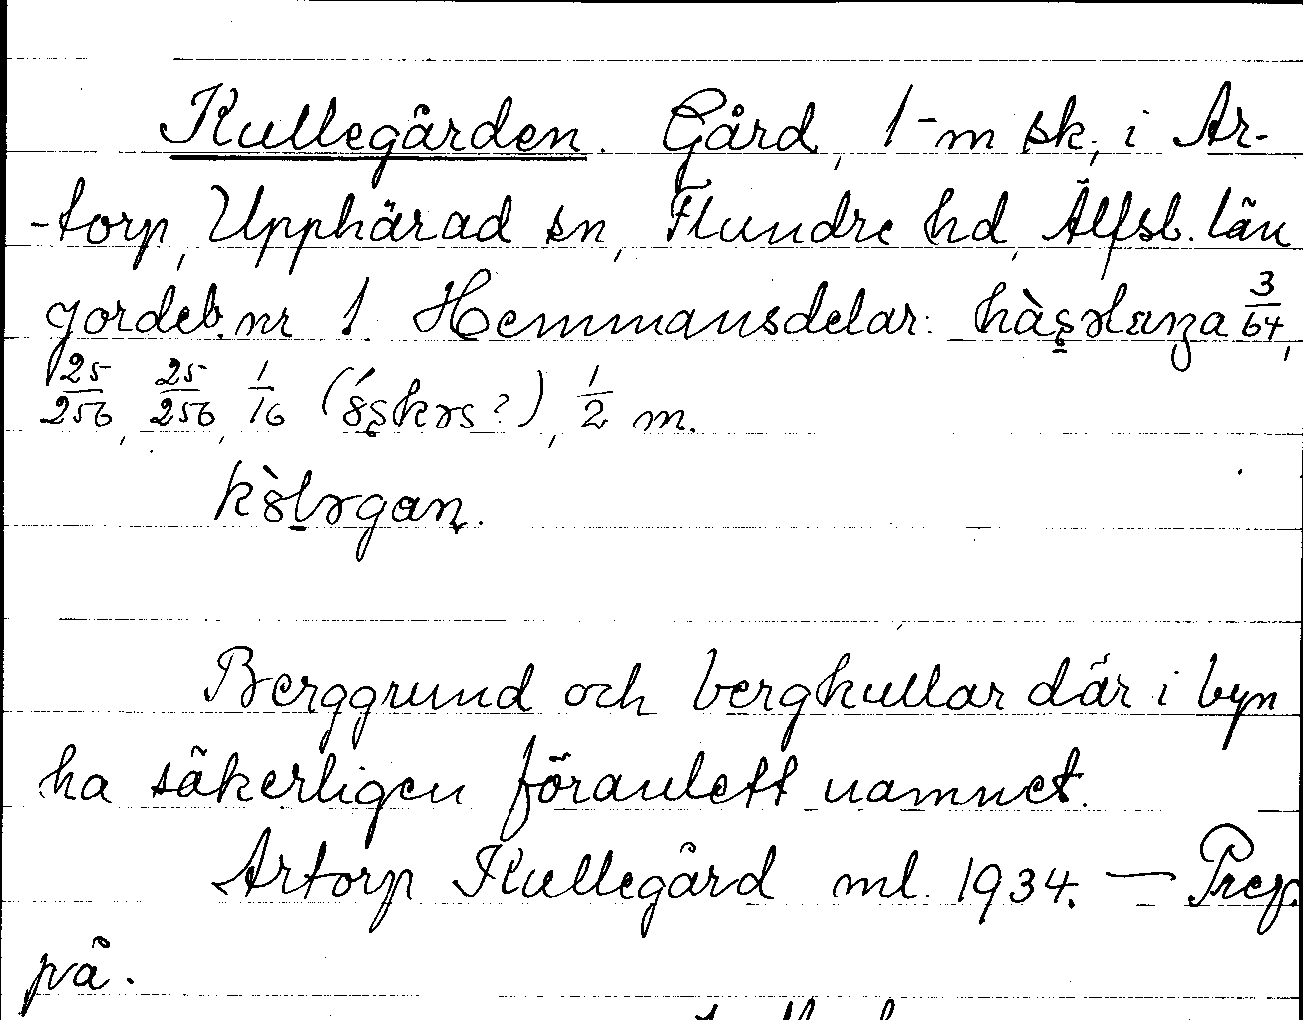 Kullegården. Gård, 1-m sk, i Ar-
-torp, Upphärad sn, Flundre hd, Älfsb. län
jordeb. nr 1. Hemmansdelar: 3/64,
25/256, 25/256, 1/16 ( ?), 1/2 m.
Berggrund och bergkullar där i byn
ha säkerligen föranlett namnet.
Artorp Kullegård ml. 1934. — Prep.
på.